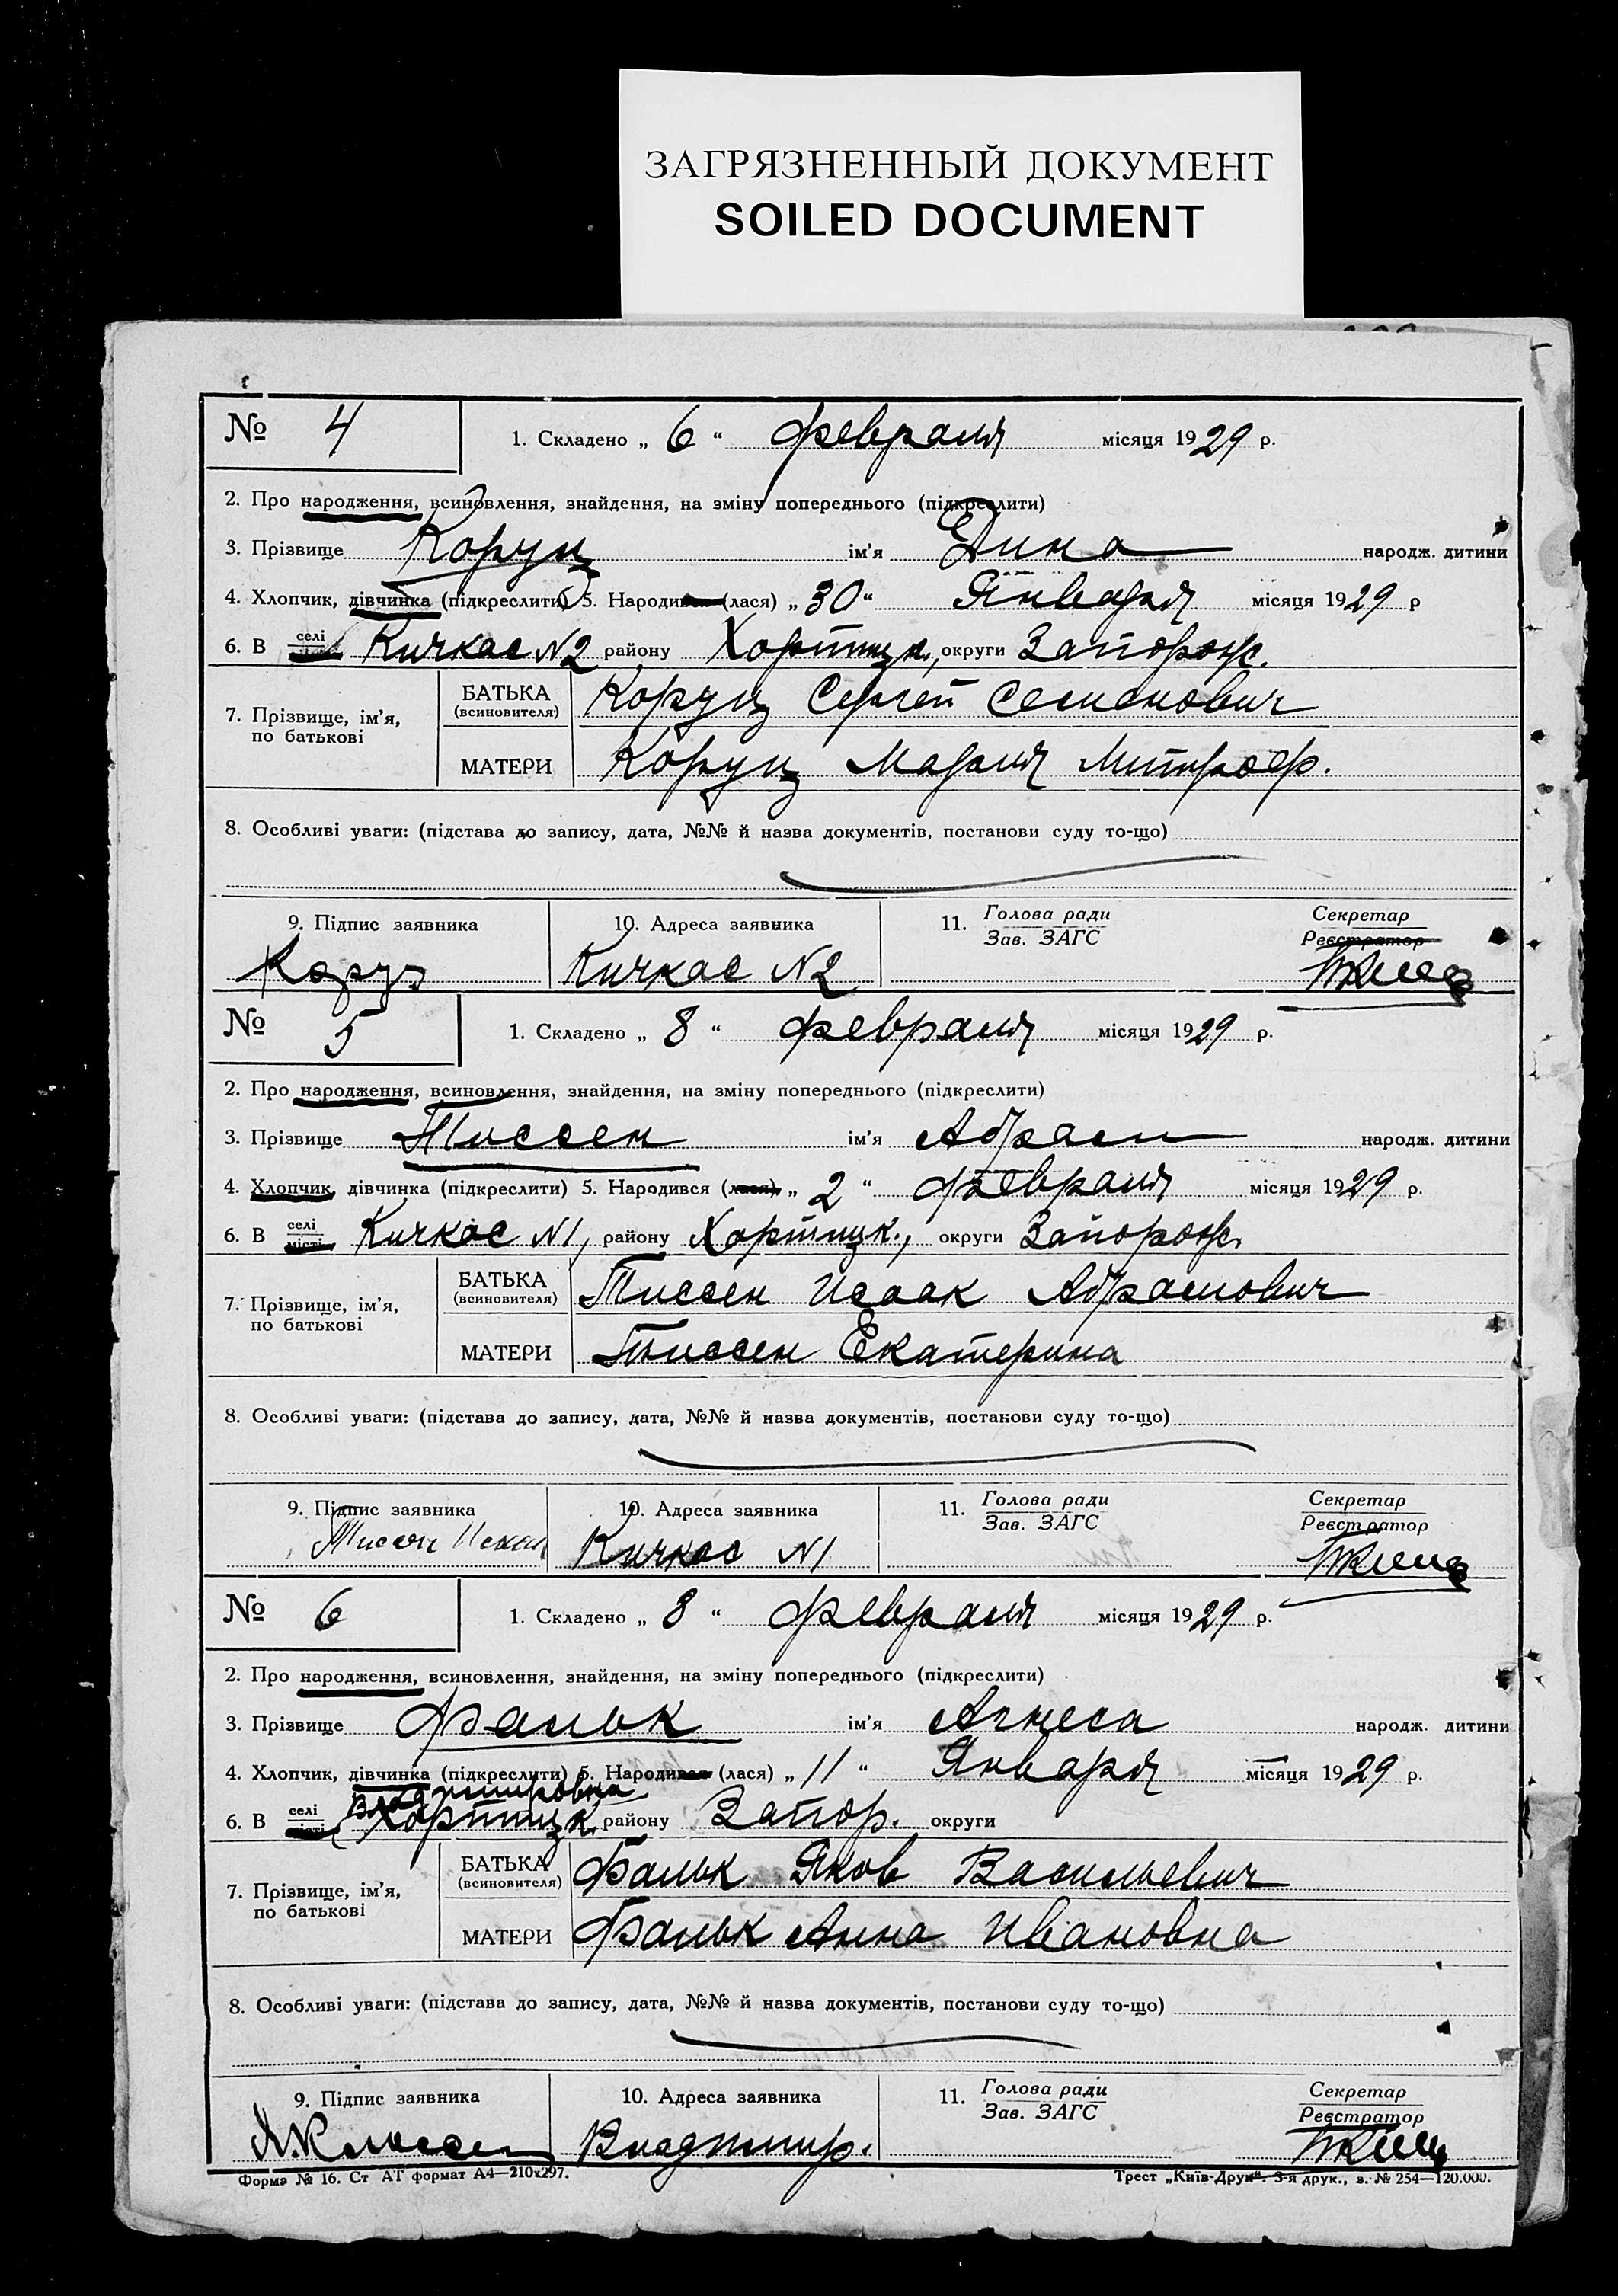 ЗАГРЯЗНЕННЫЙ ДОКУМЕНТ
SOILED DOCUMENT
№ 4 1. Складено „ 6 “ февраля місяця 1929 р.
2. Про народження, всиновлення, знайдення, на зміну попереднього (підкреслити)
3. Прізвище Коруц ім’я Дина народж. дитини
4. Хлопчик, дівчинка (підкреслити) 5. Народився (лася) „ 30 “ Января місяця 1929 р
6. В селі Кичкас N2 району Хортицк., округи Запорож.
7. Прізвище, ім’я, по батькові БАТЬКА (всиновителя) Коруц Сергей Семенович
МАТЕРИ Коруц Мария Митроф.
8. Особливі уваги: (підстава до запису, дата, №№ й назва документів, постанови суду то-що)
9. Підпис заявника 10. Адреса заявника 11. Голова ради Секретар
Зав. ЗАГС Реєстратор
Коруц Кичкас N2
№ 5 1. Складено „ 8 “ февраля місяця 1929 р.
2. Про народження, всиновлення, знайдення, на зміну попереднього (підкреслити)
3. Прізвище Тиссен ім’я Абрам народж. дитини
4. Хлопчик, дівчинка (підкреслити) 5. Народився (лася) „ 2 “ февраля місяця 1929 р.
6. В селі місті Кичкас N1, району Хортицк., округи Запорож.
7. Прізвище, ім’я, по батькові БАТЬКА (всиновителя) Тиссен Исаак Абрамович
МАТЕРИ Тиссен Екатерина
8. Особливі уваги: (підстава до запису, дата, №№ й назва документів, постанови суду то-що)
9. Підпис заявника 10. Адреса заявника 11. Голова ради Секретар
Зав. ЗАГС Реєстратор
Тиссен Кичкас N1
№ 6 1. Складено „ 8 “ февраля місяця 1929 р.
2. Про народження, всиновлення, знайдення, на зміну попереднього (підкреслити)
3. Прізвище Фальк ім’я Агнеса народж. дитини
4. Хлопчик, дівчинка (підкреслити) 5. Народився (лася) „ 11 “ Января місяця 1929 р.
Владимировка
6. В селі місті Хортицк. району Запор. округи
7. Прізвище, ім’я, по батькові БАТЬКА (всиновителя) Фальк Яков Васильевич
МАТЕРИ Фальк Анна Ивановна
8. Особливі уваги: (підстава до запису, дата, №№ й назва документів, постанови суду то-що)
9. Підпис заявника 10. Адреса заявника 11. Голова ради Секретар
Зав. ЗАГС Реєстратор
Я. Классен Владимир.
Форма № 16. Ст АТ формат А4—210х297. Трест „Київ-Друк“. 3-я друк., з. № 254—120.000.